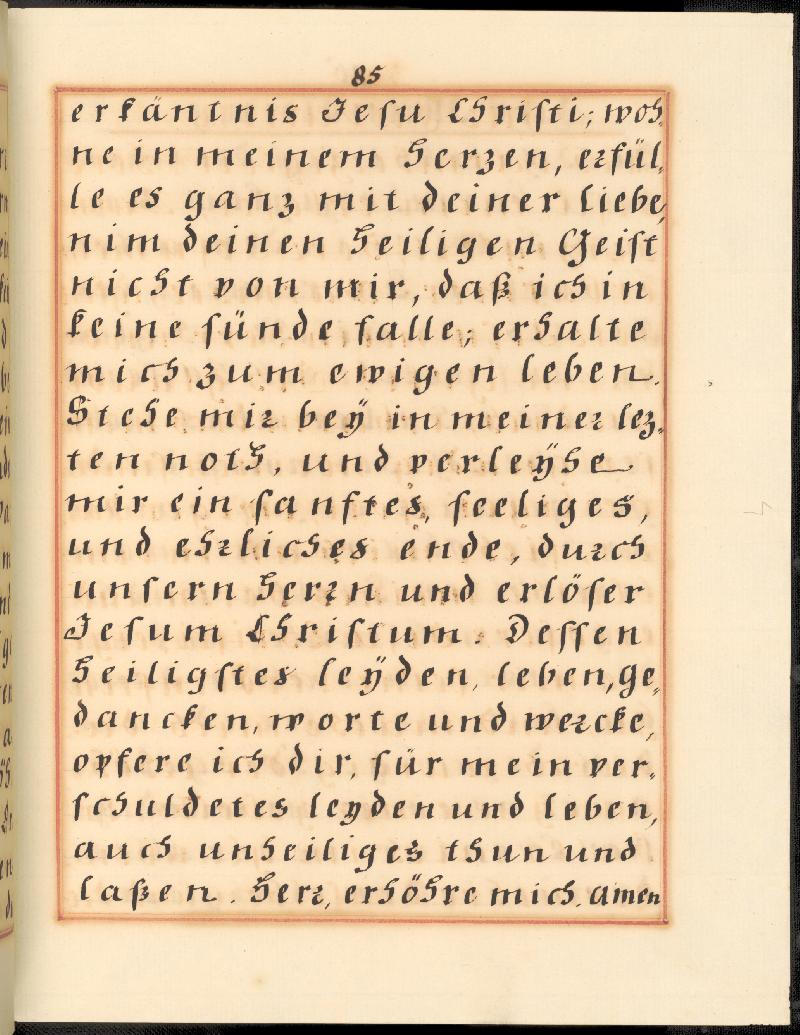 85
erkäntnis Jesu Christi; woh-
ne in meinem Herzen, erfül-
le es ganz mit deiner liebe,
nim deinen Heiligen Geist
nicht von mir, daß ich in
keine sünde falle; erhalte
mich zum ewigen leben.
Stehe mir beÿ in meiner lez-
ten noth, und verleÿhe
mir ein sanftes, seeliges,
und ehrliches ende, durch
unsern Herrn und erlöser
Jesum Christum. Dessen
Heiligstes leÿden, leben, ge-
dancken, worte und wercke,
opfere ich dir, für mein ver-
schuldetes leyden und leben,
auch unheiliges thun und
laßen. Herr, erhöhre mich. amen